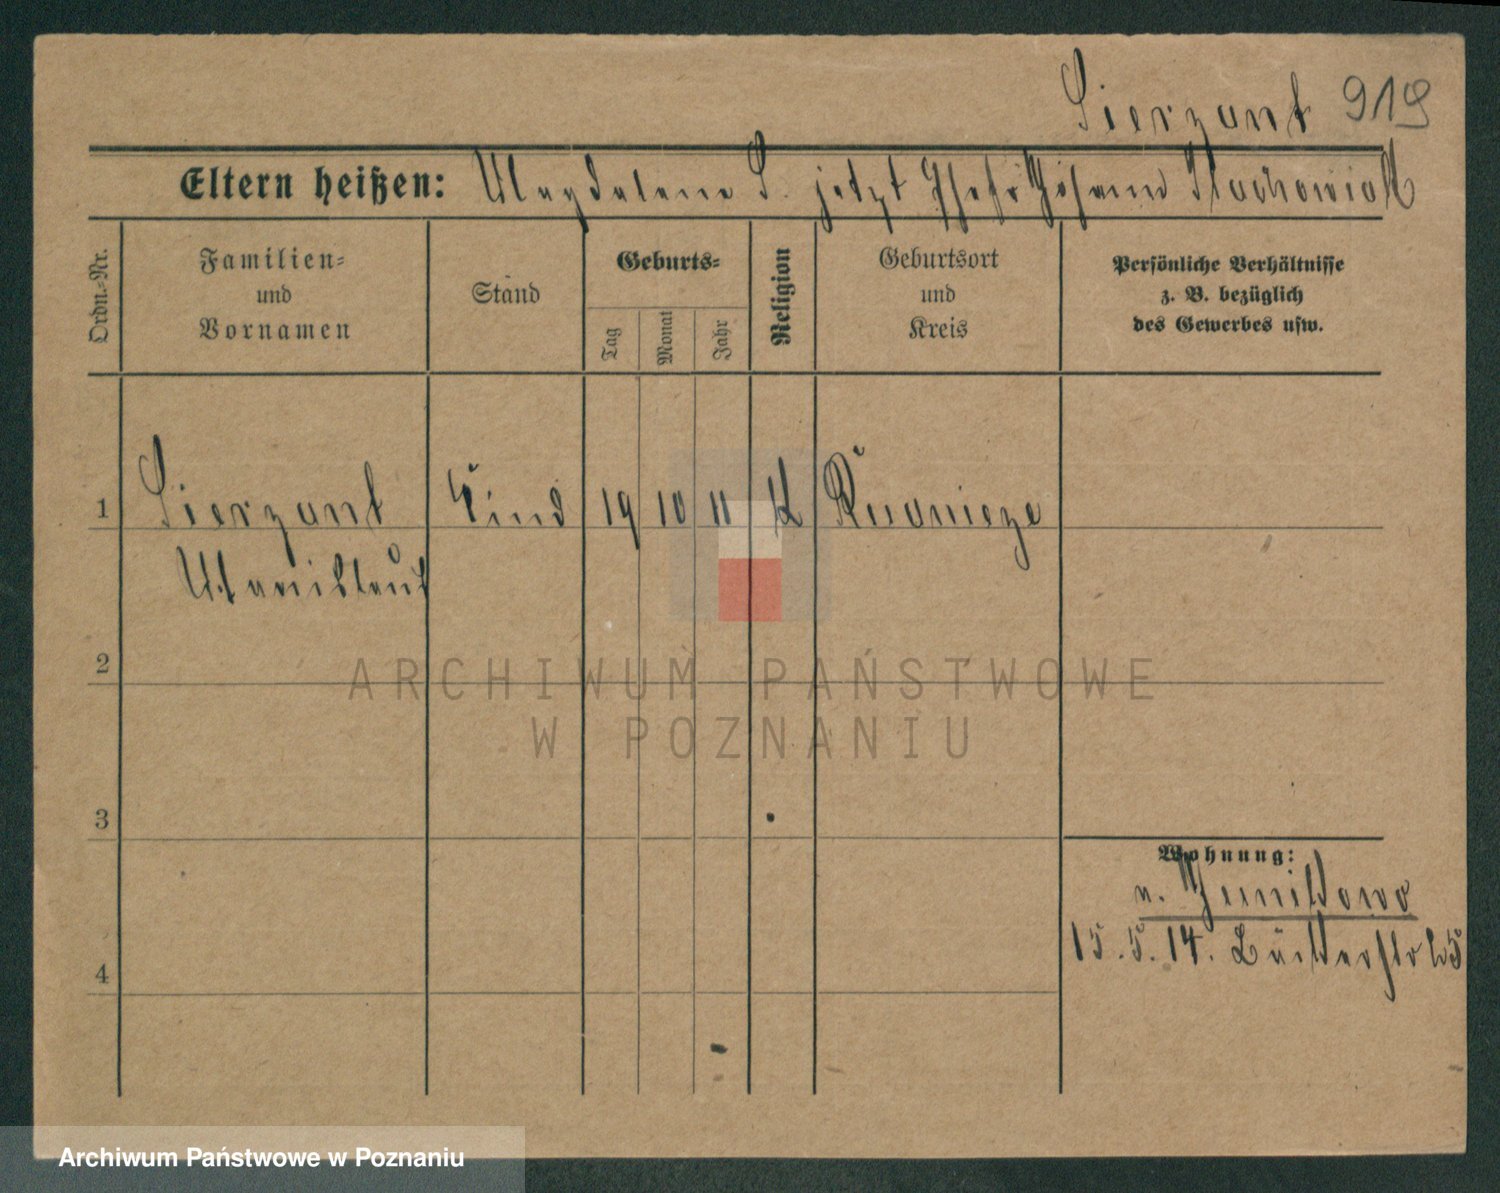 Sierzant 919
Eltern heißen: Magdalena S. jetzt Ehefr Johann Stachowiak
Ordn.-Nr.
Familien-
und
Vornamen
Stand
Geburts-
Tag
Monat
Jahr
Religion
Geburtsort
und
Kreis
Persönliche Verhältnisse
z. B. bezüglich
des Gewerbes usw.
1 Sierzant Kind 19 10 11 K
Stanislaus
2
ARCHIWUM PAŃSTWOWE
W POZNANIU
3
Wohnung:
n. Junikowo
4
15.5.14.
Archiwum Państwowe w Poznaniu